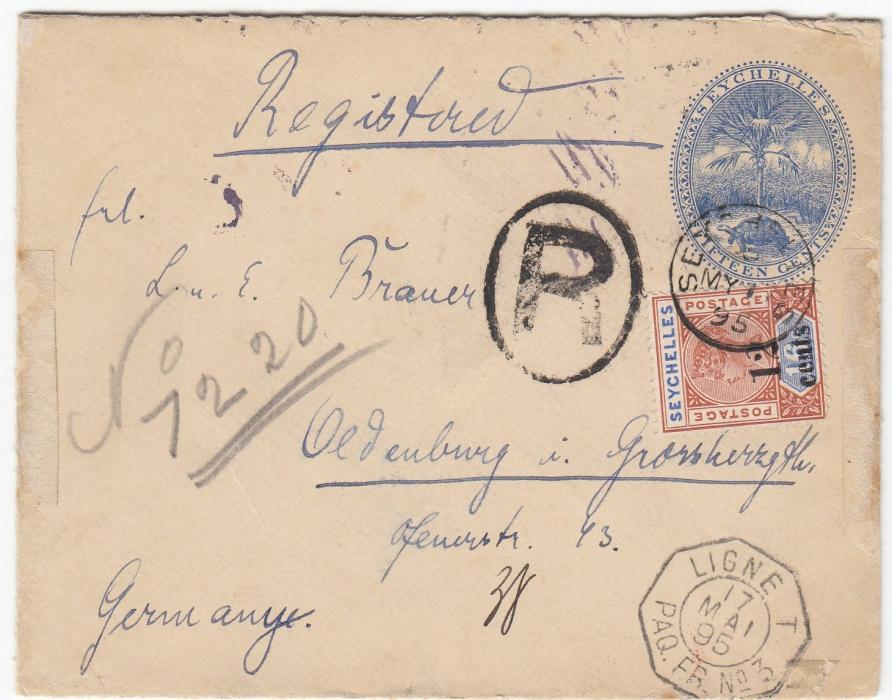 Registered
SEYCHELLES
FIFTEEN CENTS
frl.
L. u. E. Brauer
R
SEYCHELLES
MY
95
SEYCHELLES
POSTAGE
POSTAGE
12 cents
16
No 1220
Oldenburg i. Grossherzgth.
43.
38
Germany.
LIGNE T
17
MAI
95
PAQ. FR. No 3